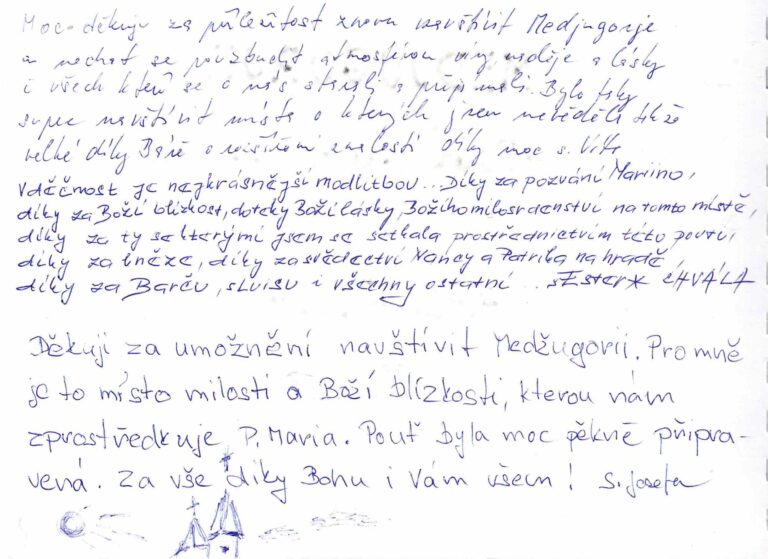 Moc děkuju za příležitost znovu navštívit Medjugorje
a nechat se povzbudit atmosférou víry naděje a lásky
i všech kteří se o nás starali a přijímali. Bylo taky
super navštívit místa o kterých jsem nevěděla takže
velké díky Báře o rozšíření znalostí díky moc s. Víta
Vděčnost je nejkrásnější modlitbou... Díky za pozvání Mariino,
díky za Boží blízkost, doteky Boží lásky, Božího milosrdenství na tomto místě,
díky za ty se kterými jsem se setkala prostřednictvím této pouti,
díky za kněze, díky za svědectví Nancy a Patrika na hradě,
díky za Barču, sluisu i všechny ostatní... sEster* CHVÁLA
Děkuji za umožnění navštívit Medžugorii. Pro mně
je to místo milosti a Boží blízkosti, kterou nám
zprostředkuje P. Maria. Pouť byla moc pěkně připra-
vená. Za vše díky Bohu i Vám všem! S. Josefa